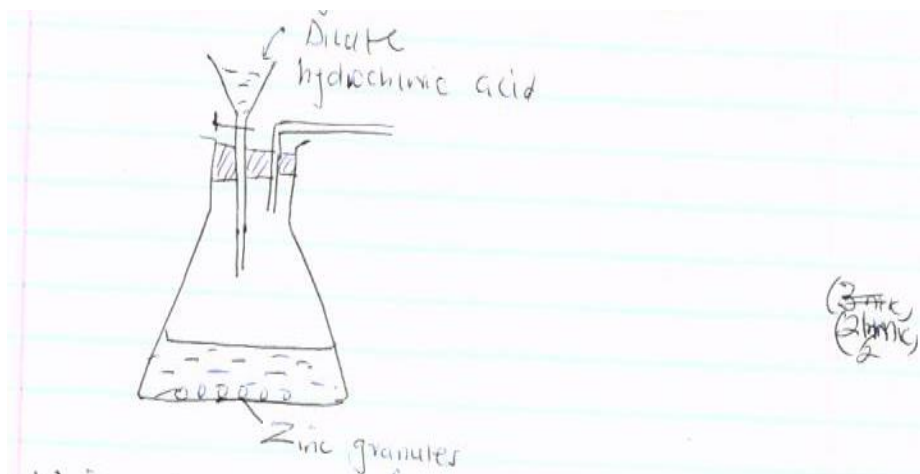 Dilute
hydrochloric acid
(2½mk,
Zinc granules